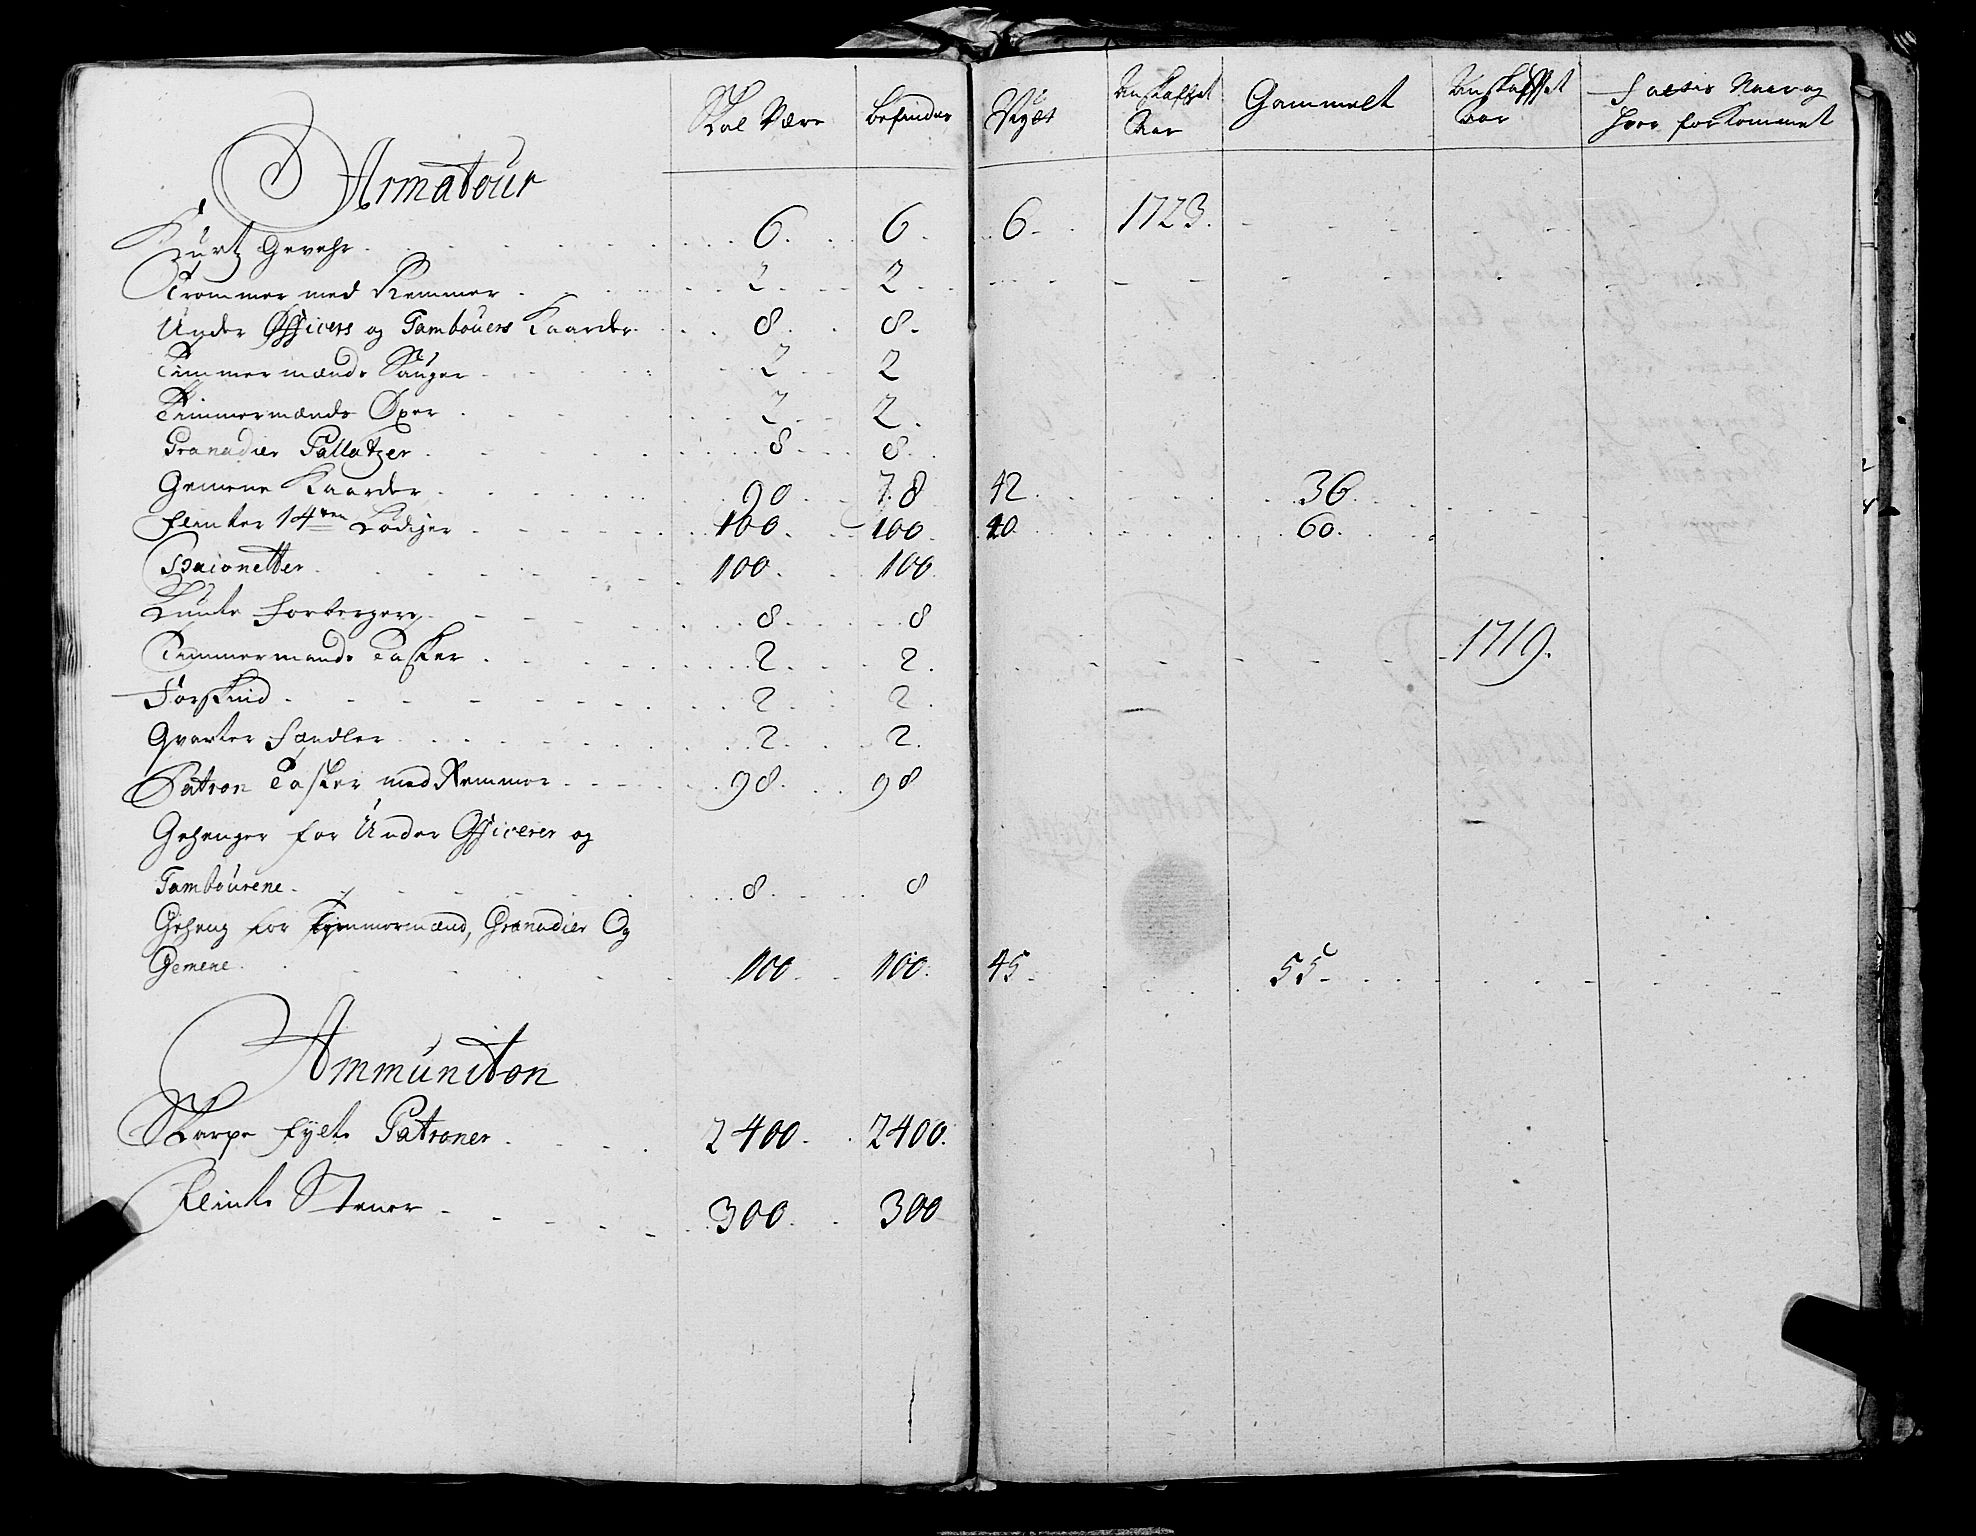 Skal Være befindes Nyet Anskaffet Gammelt Anskaffet Naar og
Aar Aar hvor forkommet
Armatour
Kurtz Gevehr 6. 6. 6. 1723.
Trommer med Remmer 2. 2.
Under Officers og Tambouers Kaarder 8. 8.
Timmermænds Sauger 2. 2
Timmermænds Öxer 2. 2.
Granadier Pallatzer 8. 8.
Gemene Kaarder 90 78 42. 36.
Flinter 14ten Lødiger 100 100 40 60.
Baionetter 100. 100.
Lunte Forbergere 8. 8
Timmermænds Tasker 2. 2. 1719.
Forskind 2. 2.
Qvarter 2. 2.
Patron Tasker med Remmer 98. 98
Gehenger for Under Officerer og
Tambourene 8. 8
Geheng for Tymmermænd, Granadier Og
Gemene 100 100. 45. 55.
Ammunition
Skarpe fylte Patroner 2400. 2400.
Flinte Stener 300. 300